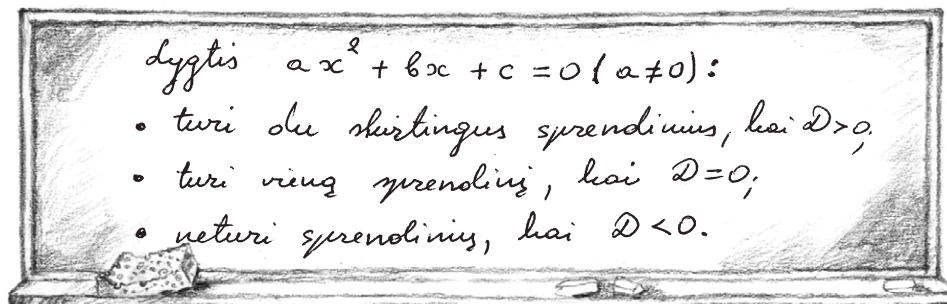 Lygtis ax² + bx + c = 0 (a ≠ 0):
• turi du skirtingus sprendinius, kai D > 0;
• turi vieną sprendinį, kai D = 0;
• neturi sprendinių, kai D < 0.